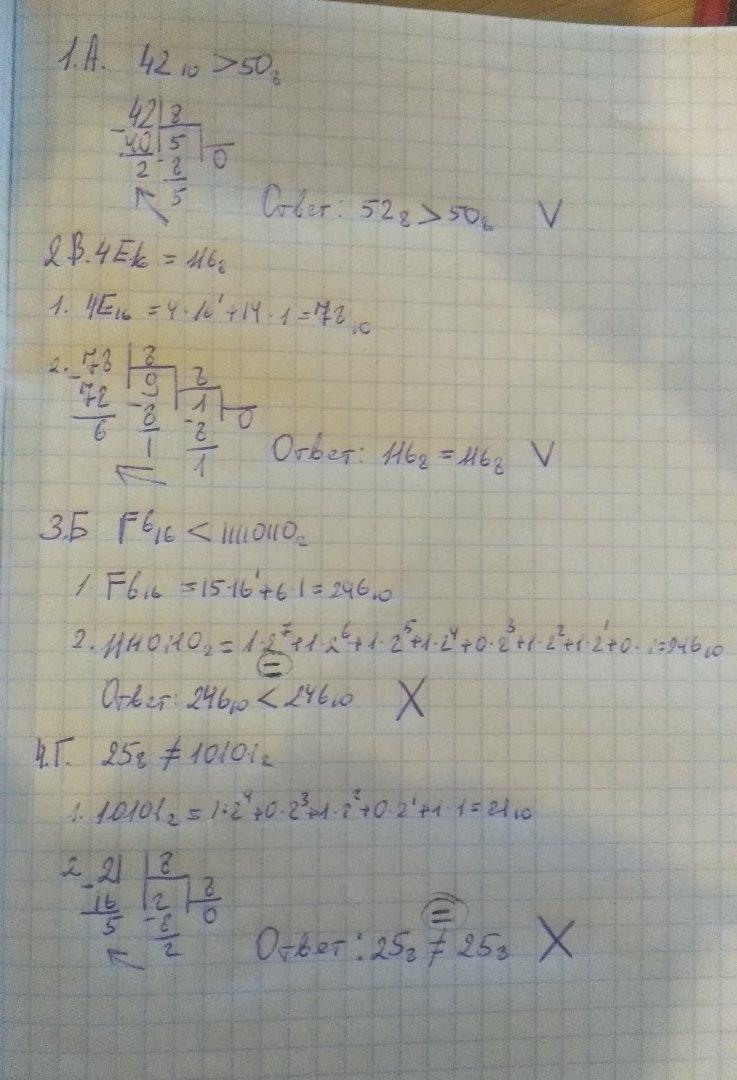 1.А. 42₁₀ > 50₈
42 | 8
- 40 | 5 | 0
2 - 8
5
Ответ: 52₈ > 50₈ V
2 В. 4E₁₆ = 116₈
1. 4E₁₆ = 4·16¹+14·1=78₁₀
2. 78 | 8
- 72 | 9 | 8
6 - 8 | 1 | 0
1 - 8
1
Ответ: 116₈ = 116₈ V
3.Б F6₁₆ < 11110110₂
1. F6₁₆ = 15·16¹+6·1=246₁₀
2. 11110110₂ = 1·2⁷+1·2⁶+1·2⁵+1·2⁴+0·2³+1·2²+1·2¹+0·1=246₁₀
=
Ответ: 246₁₀ < 246₁₀ X
4.Г. 25₈ ≠ 10101₂
1. 10101₂ = 1·2⁴+0·2³+1·2²+0·2¹+1·1=21₁₀
2. 21 | 8
- 16 | 2 | 8
5 - 8 0
2
=
Ответ: 25₈ ≠ 25₈ X